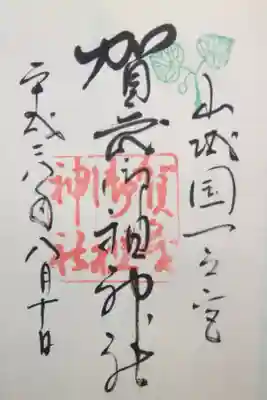 山城国一之宮
賀茂御祖神社
賀茂御祖神社
平成二八年八月十日